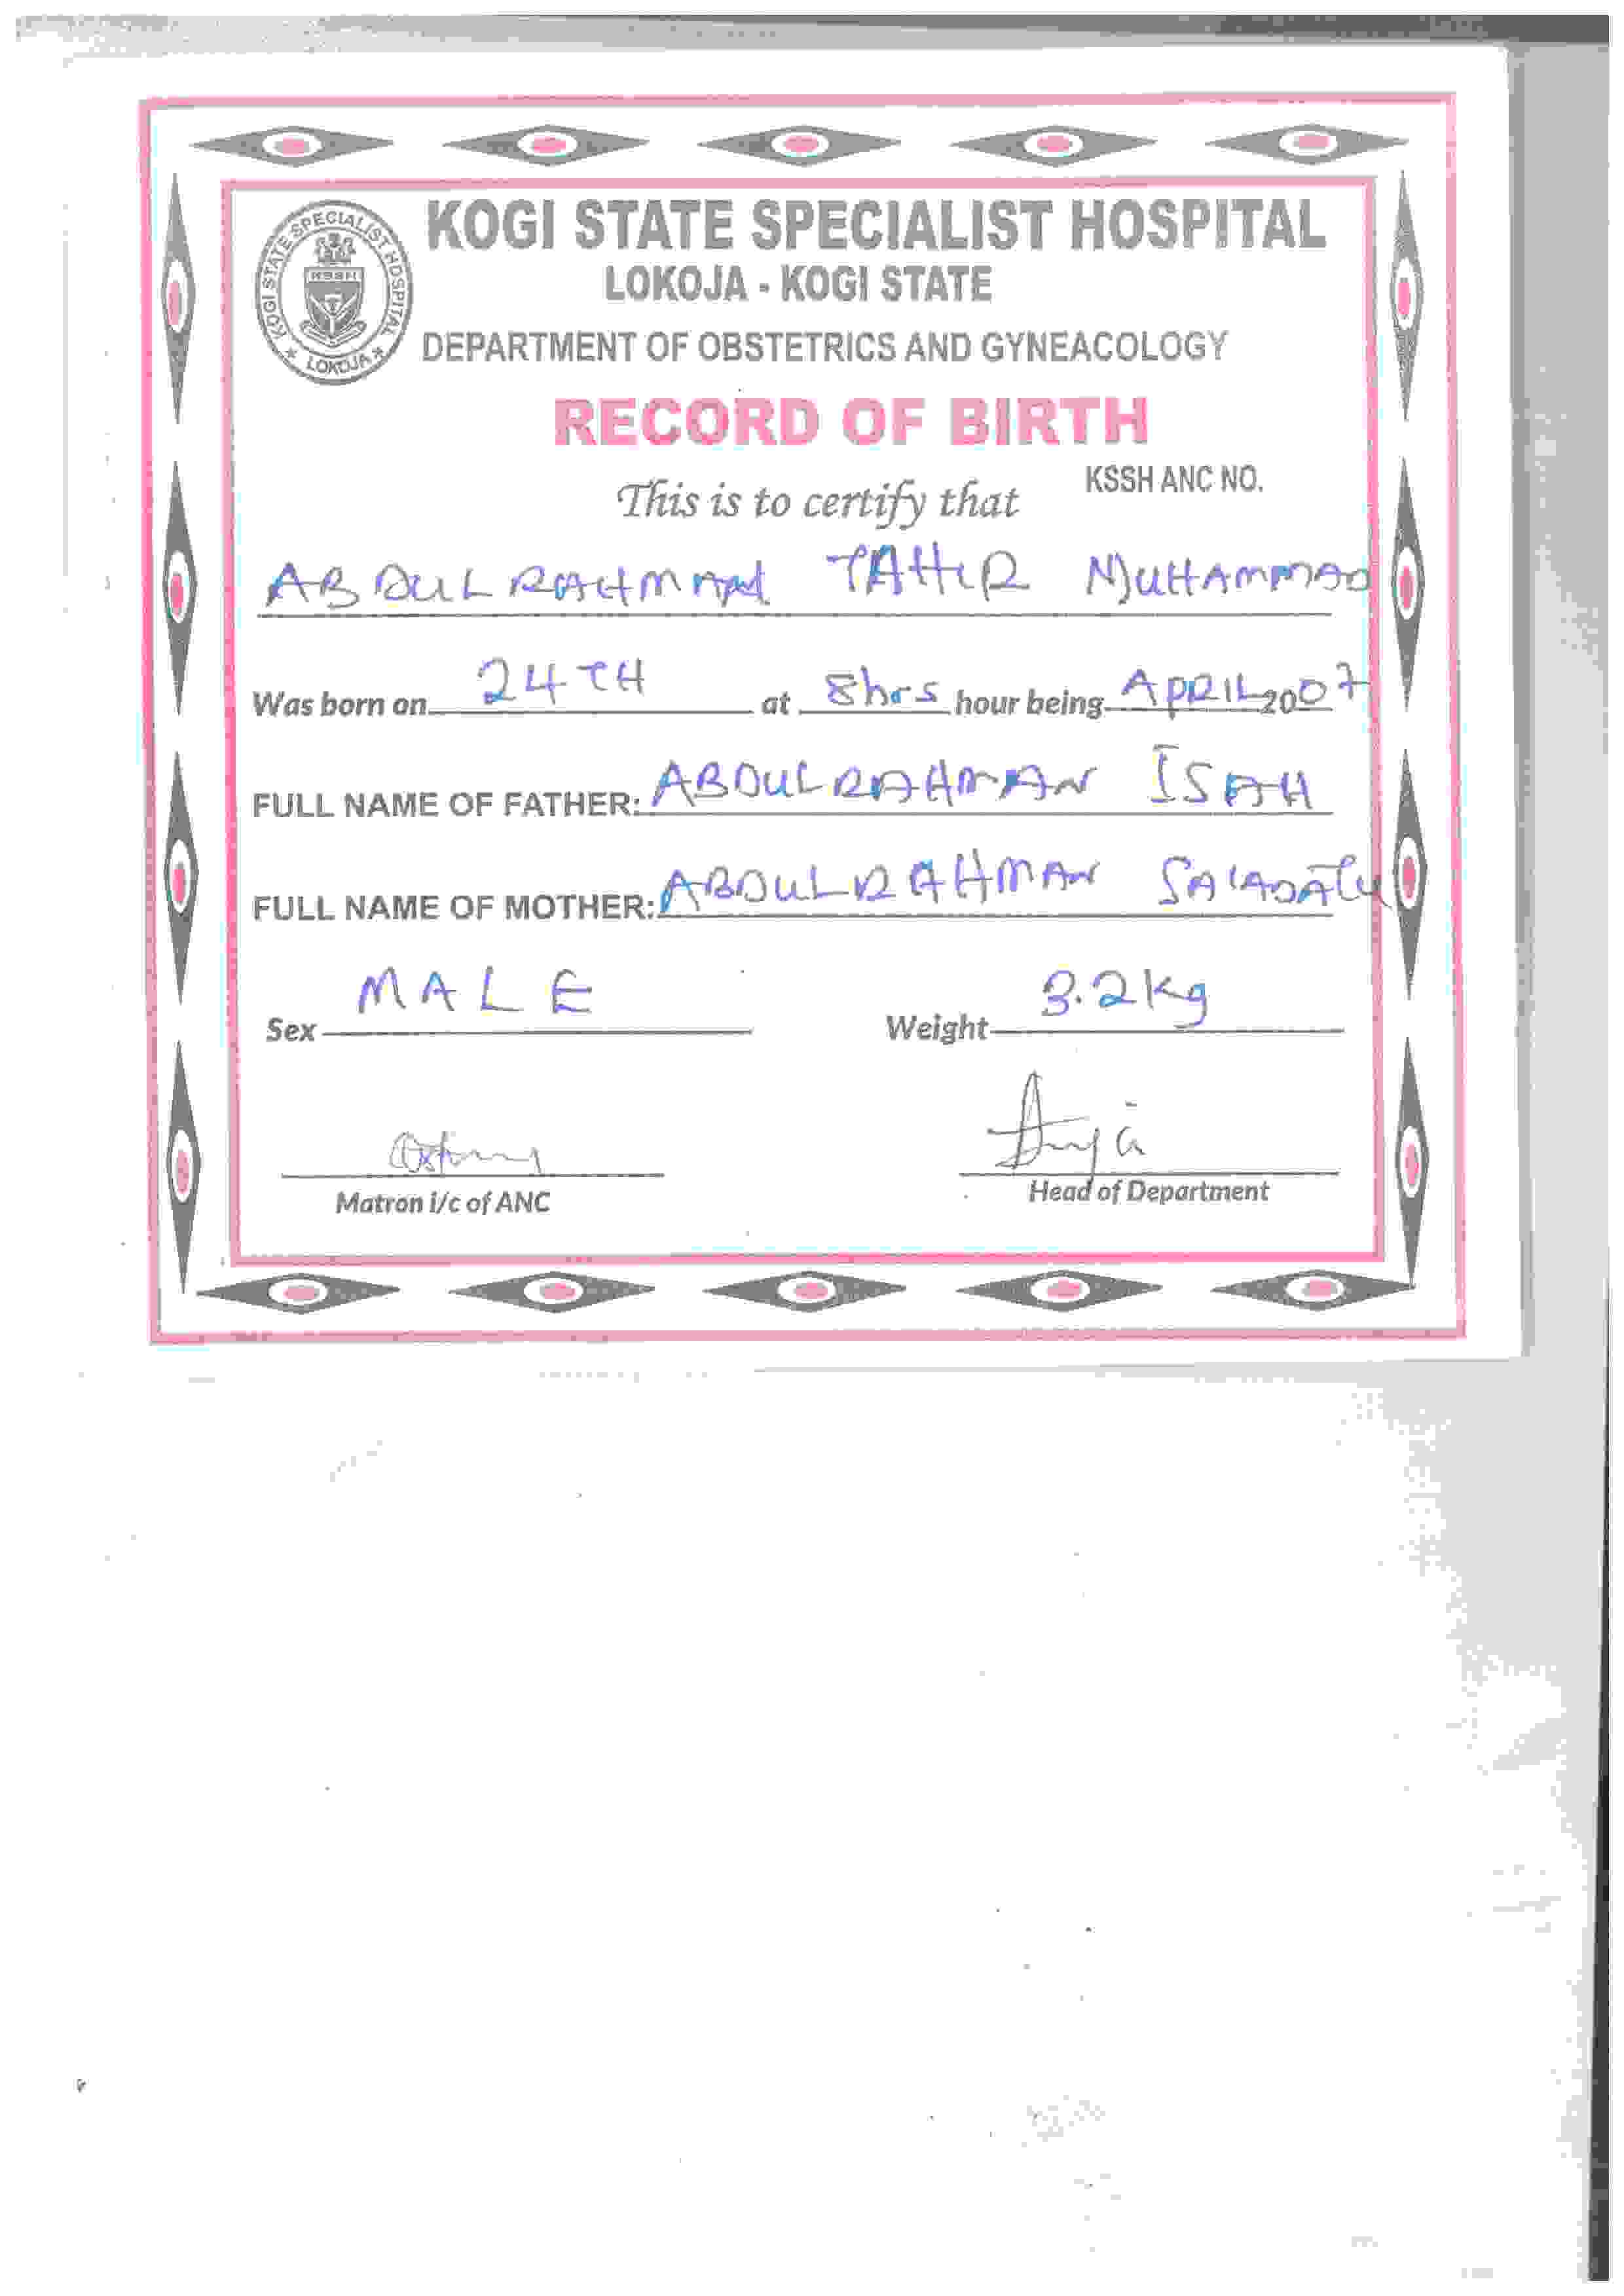 KOGI STATE SPECIALIST HOSPITAL
KOGI STATE SPECIALIST HOSPITAL
* LOKOJA *
KSSH
LOKOJA - KOGI STATE
DEPARTMENT OF OBSTETRICS AND GYNEACOLOGY
RECORD OF BIRTH
KSSH ANC NO.
This is to certify that
ABDULRAHMAN TAHIR MUHAMMAD
Was born on 24TH at 8hrs hour being APRIL 2007
FULL NAME OF FATHER: ABDULRAHMAN ISAH
FULL NAME OF MOTHER: ABDULRAHMAN SA'ADATU
Sex MALE Weight 3.2kg
Matron i/c of ANC Head of Department